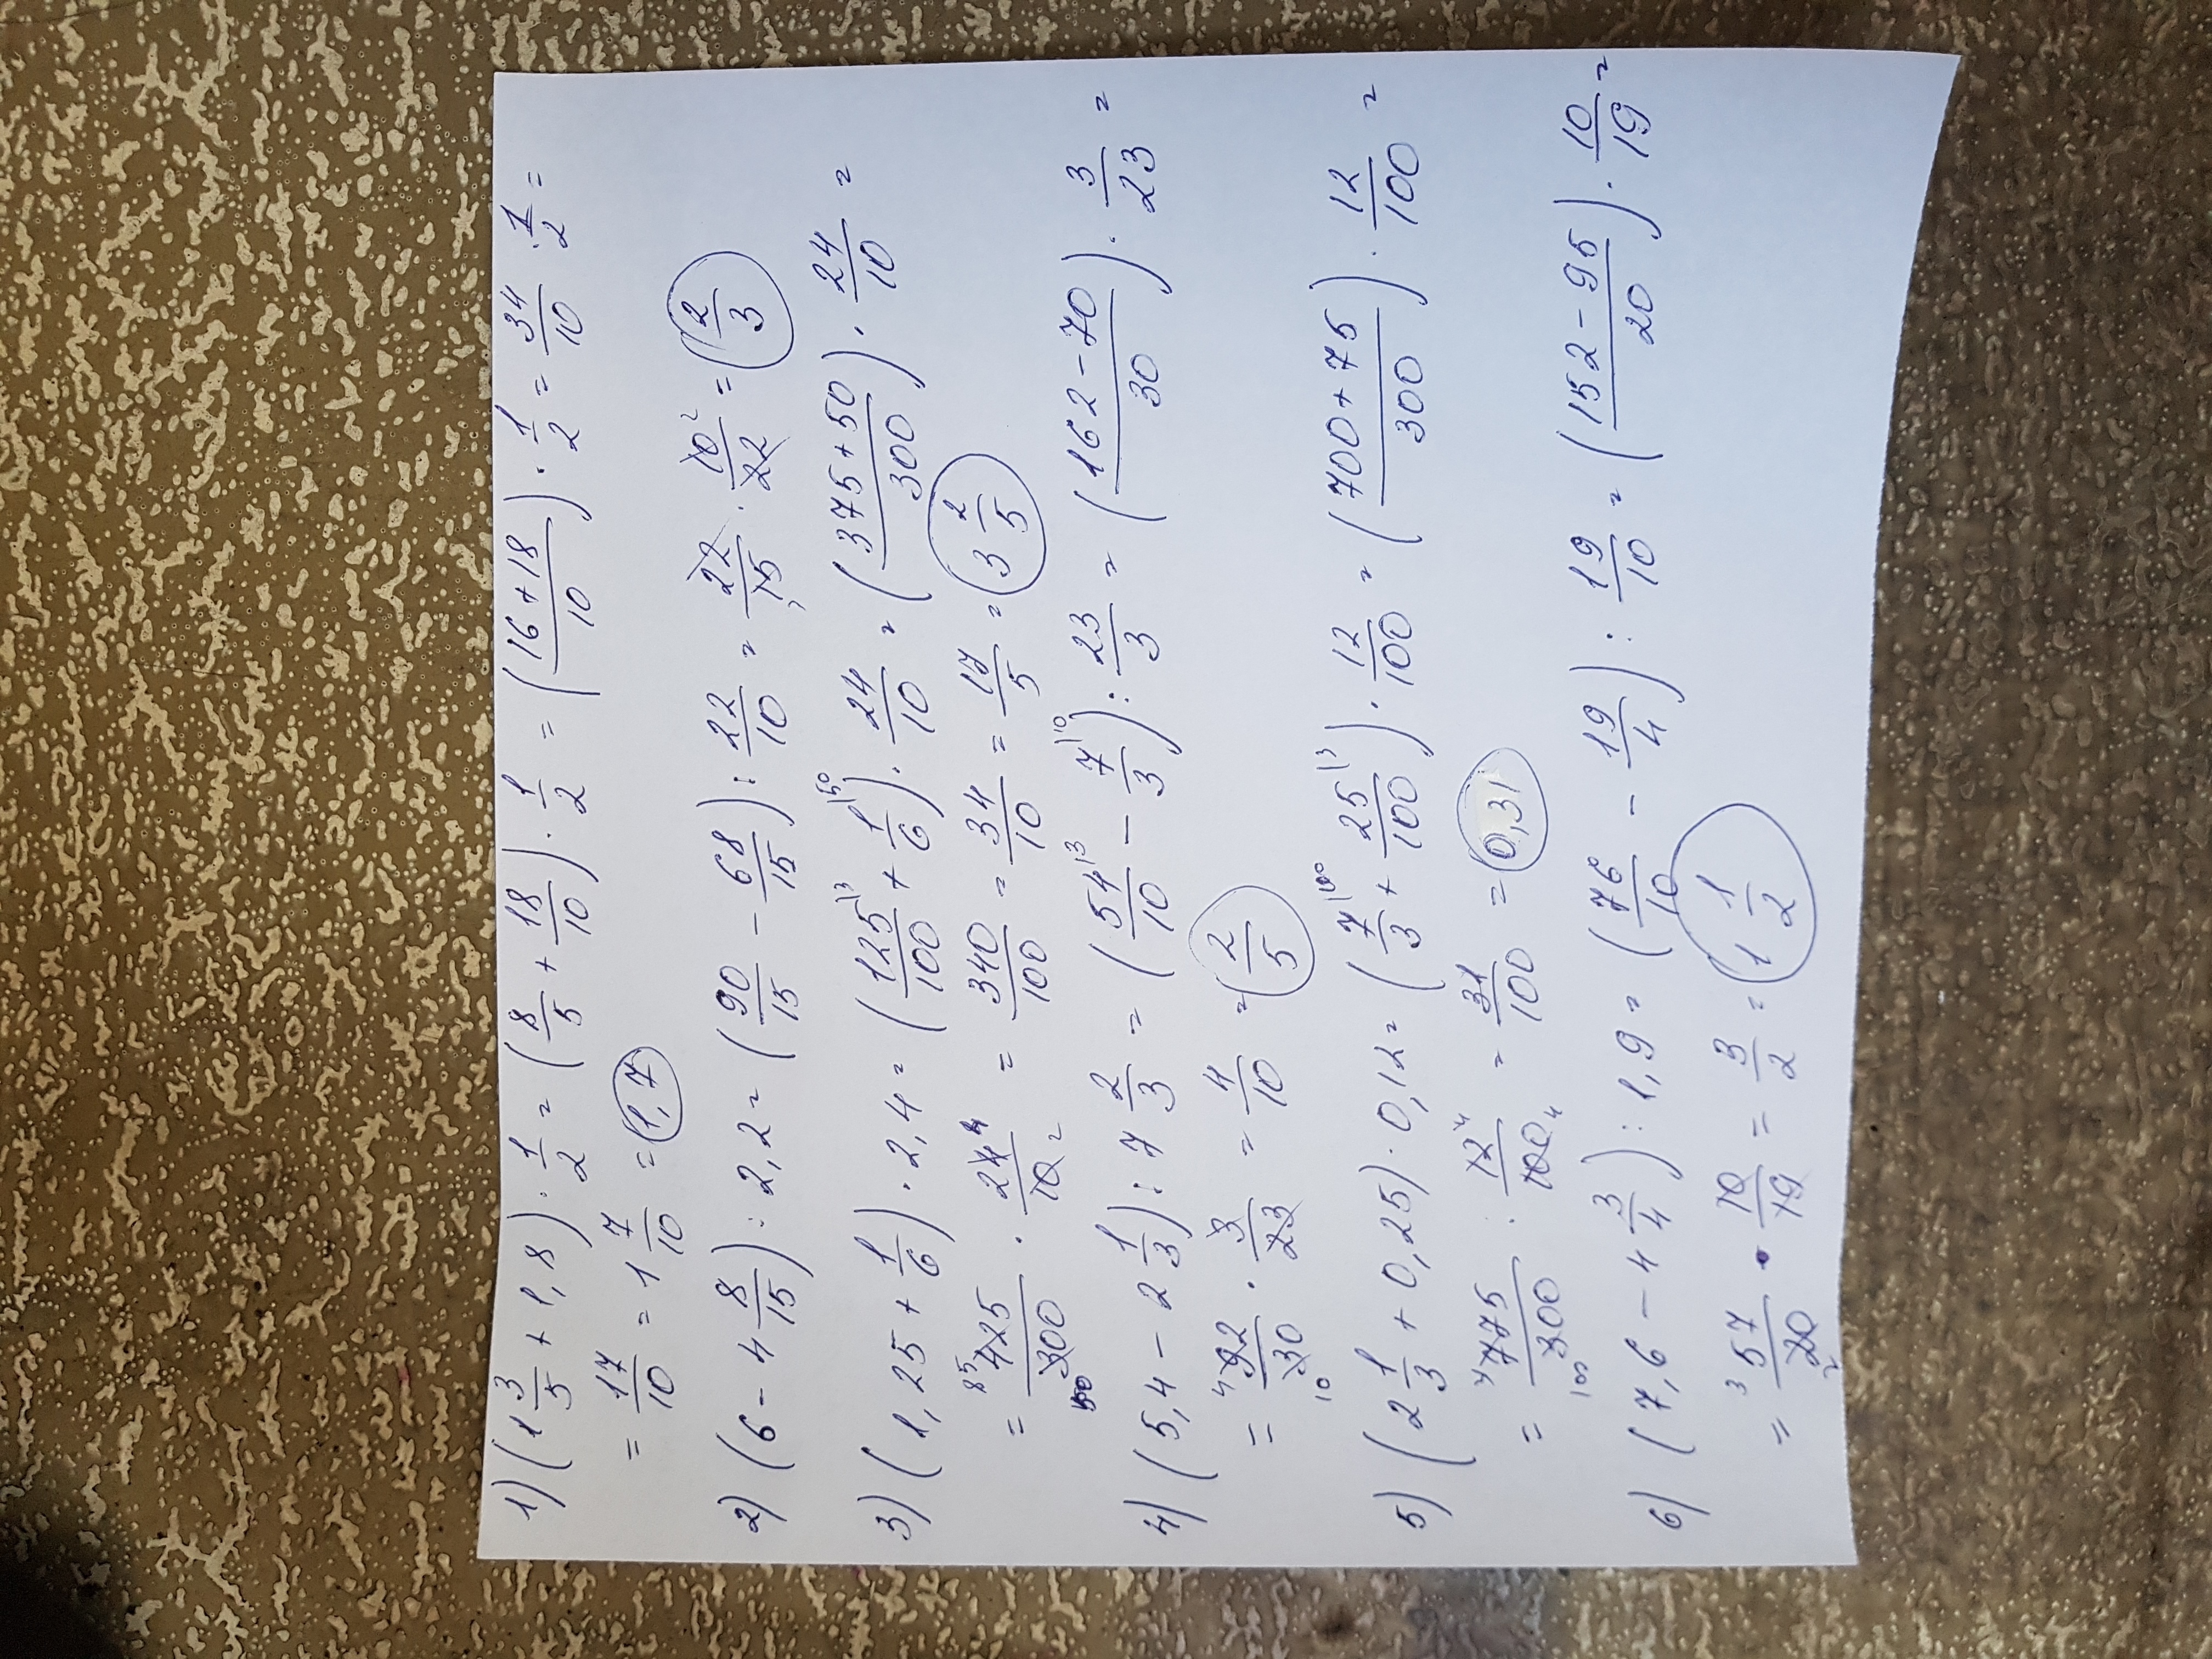 1) (1 3/5 + 1,8) · 1/2 = (8/5 + 18/10) · 1/2 = (16+18/10) · 1/2 = 34/10 · 1/2 =
= 17/10 = 1 7/10 = 1,7
2) (6 - 4 8/15) : 2,2 = (90/15 - 68/15) : 22/10 = 22/15 · 10²/22 = 2/3
3) (1,25 + 1/6) · 2,4 = (125/100 |3 + 1/6 |50) · 24/10 = (375+50/300) · 24/10 =
= 425/300 · 24/10 = 340/100 = 34/10 = 17/5 = 3 2/5
4) (5,4 - 2 1/3) : 7 2/3 = (54/10 |3 - 7/3 |10) : 23/3 = (162-70/30) · 3/23 =
= 92/30 · 3/23 = 4/10 = 2/5
5) (2 1/3 + 0,25) · 0,12 = (7/3 |100 + 25/100 |3) · 12/100 = (700+75/300) · 12/100 =
= 775/300 : 12/100 = 31/100 = 0,31
6) (7,6 - 4 3/4) : 1,9 = (76/10 - 19/4) : 19/10 = (152-95/20) · 10/19 =
= 57/20 · 10/19 = 3/2 = 1 1/2